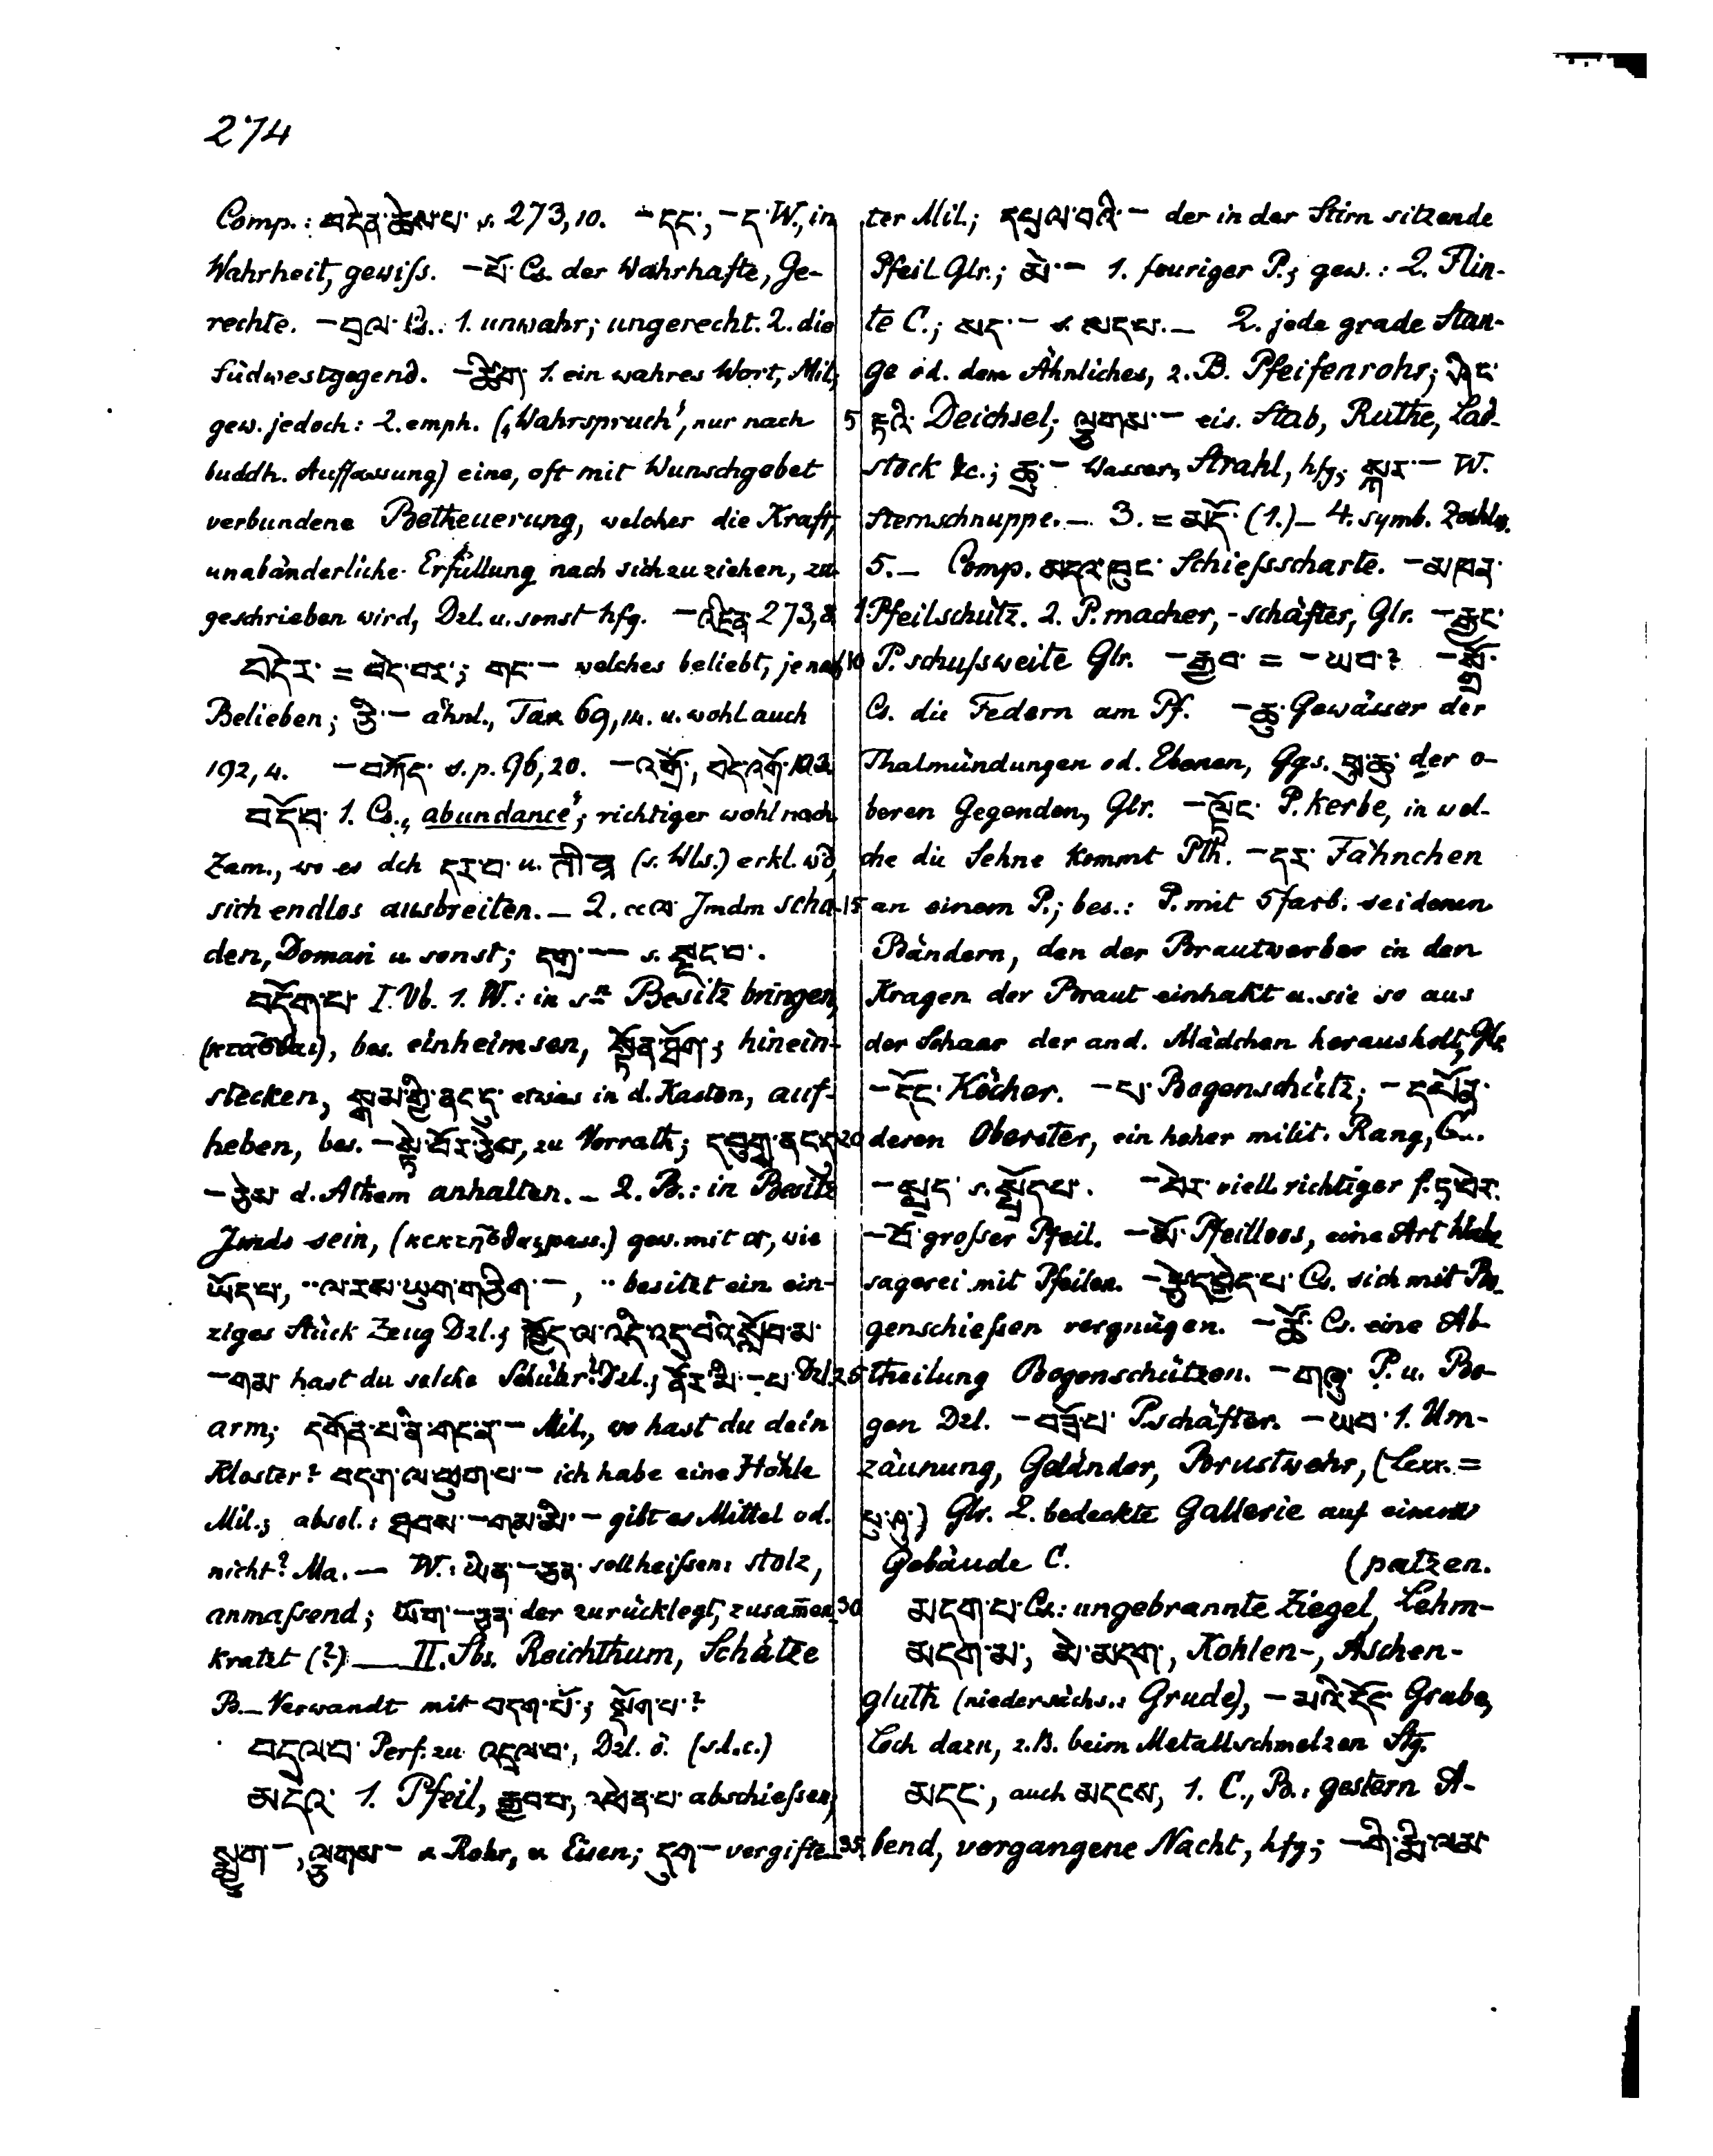 274
Comp.: བདེན་ཚིམ་པ་ s. 273,10. –དང་, –ད་ W., in
Wahrheit, gewiſs. –པོ་ Cs. der Wahrhafte, Ge-
rechte. –བྲལ་ Cs.: 1. unwahr; ungerecht. 2. die
Südwestgegend. –ཚིག་ 1. ein wahres Wort, Mil.,
gew. jedoch: 2. emph. („Wahrspruch‘, nur nach
buddh. Auffassung) eine, oft mit Wunschgebet
verbundene Betheuerung, welcher die Kraft,
unabänderliche Erfüllung nach sich zu ziehen, zu-
geschrieben wird, Dzl. u. sonst hfg. –འཛིན་ 273,8.
བདེར་ = བདེ་བར་; གང་ – welches beliebt, je nach
Belieben; ཅི་ – ähnl., Tar. 69,14. u. wohl auch
192,4. –བཀོད་ s. p. 96,20. –འགྲོ་, བདེ་འགྲོ་ 102
བདོབ་ 1. Cs., abundance‘; richtiger wohl nach
Zam., wo es dch དར་བ་ u. तीव्र (s. Wls.) erkl. wd,
sich endlos ausbreiten. – 2. cc ལ་ Jmdm scha-
den, Domań u. sonst; དགྲ་ — s. སྡང་བ་.
བདོག་པ་ I. Vb. 1. W.: in sn Besitz bringen,
(κτᾶσθαι), bes. einheimsen, སྟོན་ཐོག་; hinein-
stecken, སྒམ་གྱི་ནང་དུ་ etwas in d. Kasten, auf-
heben, bes. –སྟེ་བོར་ཅེས་, zu Vorrath; དབུགས་ནང་དུ་
–ཅེས་ d. Athem anhalten. – 2. B.: in Besitz
Jmds sein, (κεκτῆσθαι, pass.) gew. mit ལ་, wie
ཡོད་པ་, ··ལ་རས་ཡུག་གཅིག་ –, ·· besitzt ein ein-
ziges Stück Zeug Dzl.; ཁྱོད་ལ་འདི་འདྲ་བའི་སློབ་མ་
–གམ་ hast du solche Schüler? Dzl.; ནོར་མི་ –པ་ Dzl.
arm; དགོན་པ་ནི་གང་ན་ – Mil., wo hast du dein
Kloster? བདག་ལ་ཕུག་པ་ – ich habe eine Höhle
Mil.; absol.: ཐབས་ –གམ་མི་ – gibt es Mittel od.
nicht? Ma. — W.: ཡིན་ –ཅན་ soll heiſsen: stolz,
anmaſsend; ཡོག་ –ཅན་ der zurücklegt, zusam̄en-
kratzt (?) — II. Sbs. Reichthum, Schätze
B. – Verwandt mit བདག་པོ་; སྡོག་པ་?
བདལ་བ་ Perf. zu འདལ་བ་, Dzl. ö. (s. l. c.)
མདའ་ 1. Pfeil, རྒྱབ་པ་, འཕེན་པ་ abschieſsen,
སྨྱུག་ –, ལྕགས་ – a Rohr, a Eisen; དུག་ – vergifte-
ter Mil.; དཔྲལ་བའི་ – der in der Stirn sitzende
Pfeil Glr.; མེ་ – 1. feuriger P.; gew.: 2. Flin-
te C.; མད་ – s. མདམ་. – 2. jede grade Stan-
ge od. dem Ähnliches, z. B. Pfeifenrohr; ཤིང་
5 རྟའི་ Deichsel; ལྕགས་ – eis. Stab, Ruthe, Lad-
stock &c.; ཆུ་ – Wasser, Strahl, hfg; སྐར་ – W.
Sternschnuppe. – 3. = མདོ་ (1.) – 4. symb. Zahlw.
5. – Comp. མདའ་ཁུང་ Schieſsscharte. –མཁན་
1. Pfeilschütz. 2. P. macher, -schäfter, Glr. –རྒྱང་
10 P. schuſsweite Glr. –རྒྱབ་ = –ཡབ་? –སྒྲོ་
Cs. die Federn am Pf. –ཆུ་ Gewässer der
Thalmündungen od. Ebenen, Ggs. ཕུ་ཆུ་ der o-
beren Gegenden, Glr. –ལྟོང་ P. kerbe, in wel-
che die Sehne kommt Pth. –དར་ Fähnchen
15 an einem P.; bes.: P. mit 5 farb. seidenen
Bändern, den der Brautwerber in den
Kragen der Braut einhakt u. sie so aus
der Schaar der and. Mädchen herausholt, Glr.
–དོང་ Köcher. –པ་ Bogenschütz; –དཔོན་
20 deren Oberster, ein hoher milit. Rang, C..
–སྤྱད་ s. སྤྱོད་པ་. –བེར་ viell. richtiger f. དྲ་བེར་
–བོ་ groſser Pfeil. –མོ་ Pfeilloos, eine Art Wahr-
sagerei mit Pfeilen. –རྩེད་བྱེད་པ་ Cs. sich mit Bo-
genschieſsen vergnügen. –ཚོ་ Cs. eine Ab-
25 theilung Bogenschützen. –གཞུ་ P. u. Bo-
gen Dzl. –བཟོ་པ་ P. schäfter. –ཡབ་ 1. Um-
zäunung, Geländer, Brustwehr, (Lexx. =
པུ་ཤུ་) Glr. 2. bedeckte Gallerie auf einem
Gebäude C. (patzen.
30 མདག་པ་ Cs.: ungebrannte Ziegel, Lehm-
མདག་མ་, མེ་མདག་, Kohlen-, Aschen-
gluth (niedersächs.: Grude), –མའི་དོང་ Grube,
Loch dazu, z. B. beim Metallschmelzen Stg.
མདང་, auch མདངས་, 1. C., B.: gestern A-
35 bend, vergangene Nacht, hfg; –གི་རྨི་ལམ་